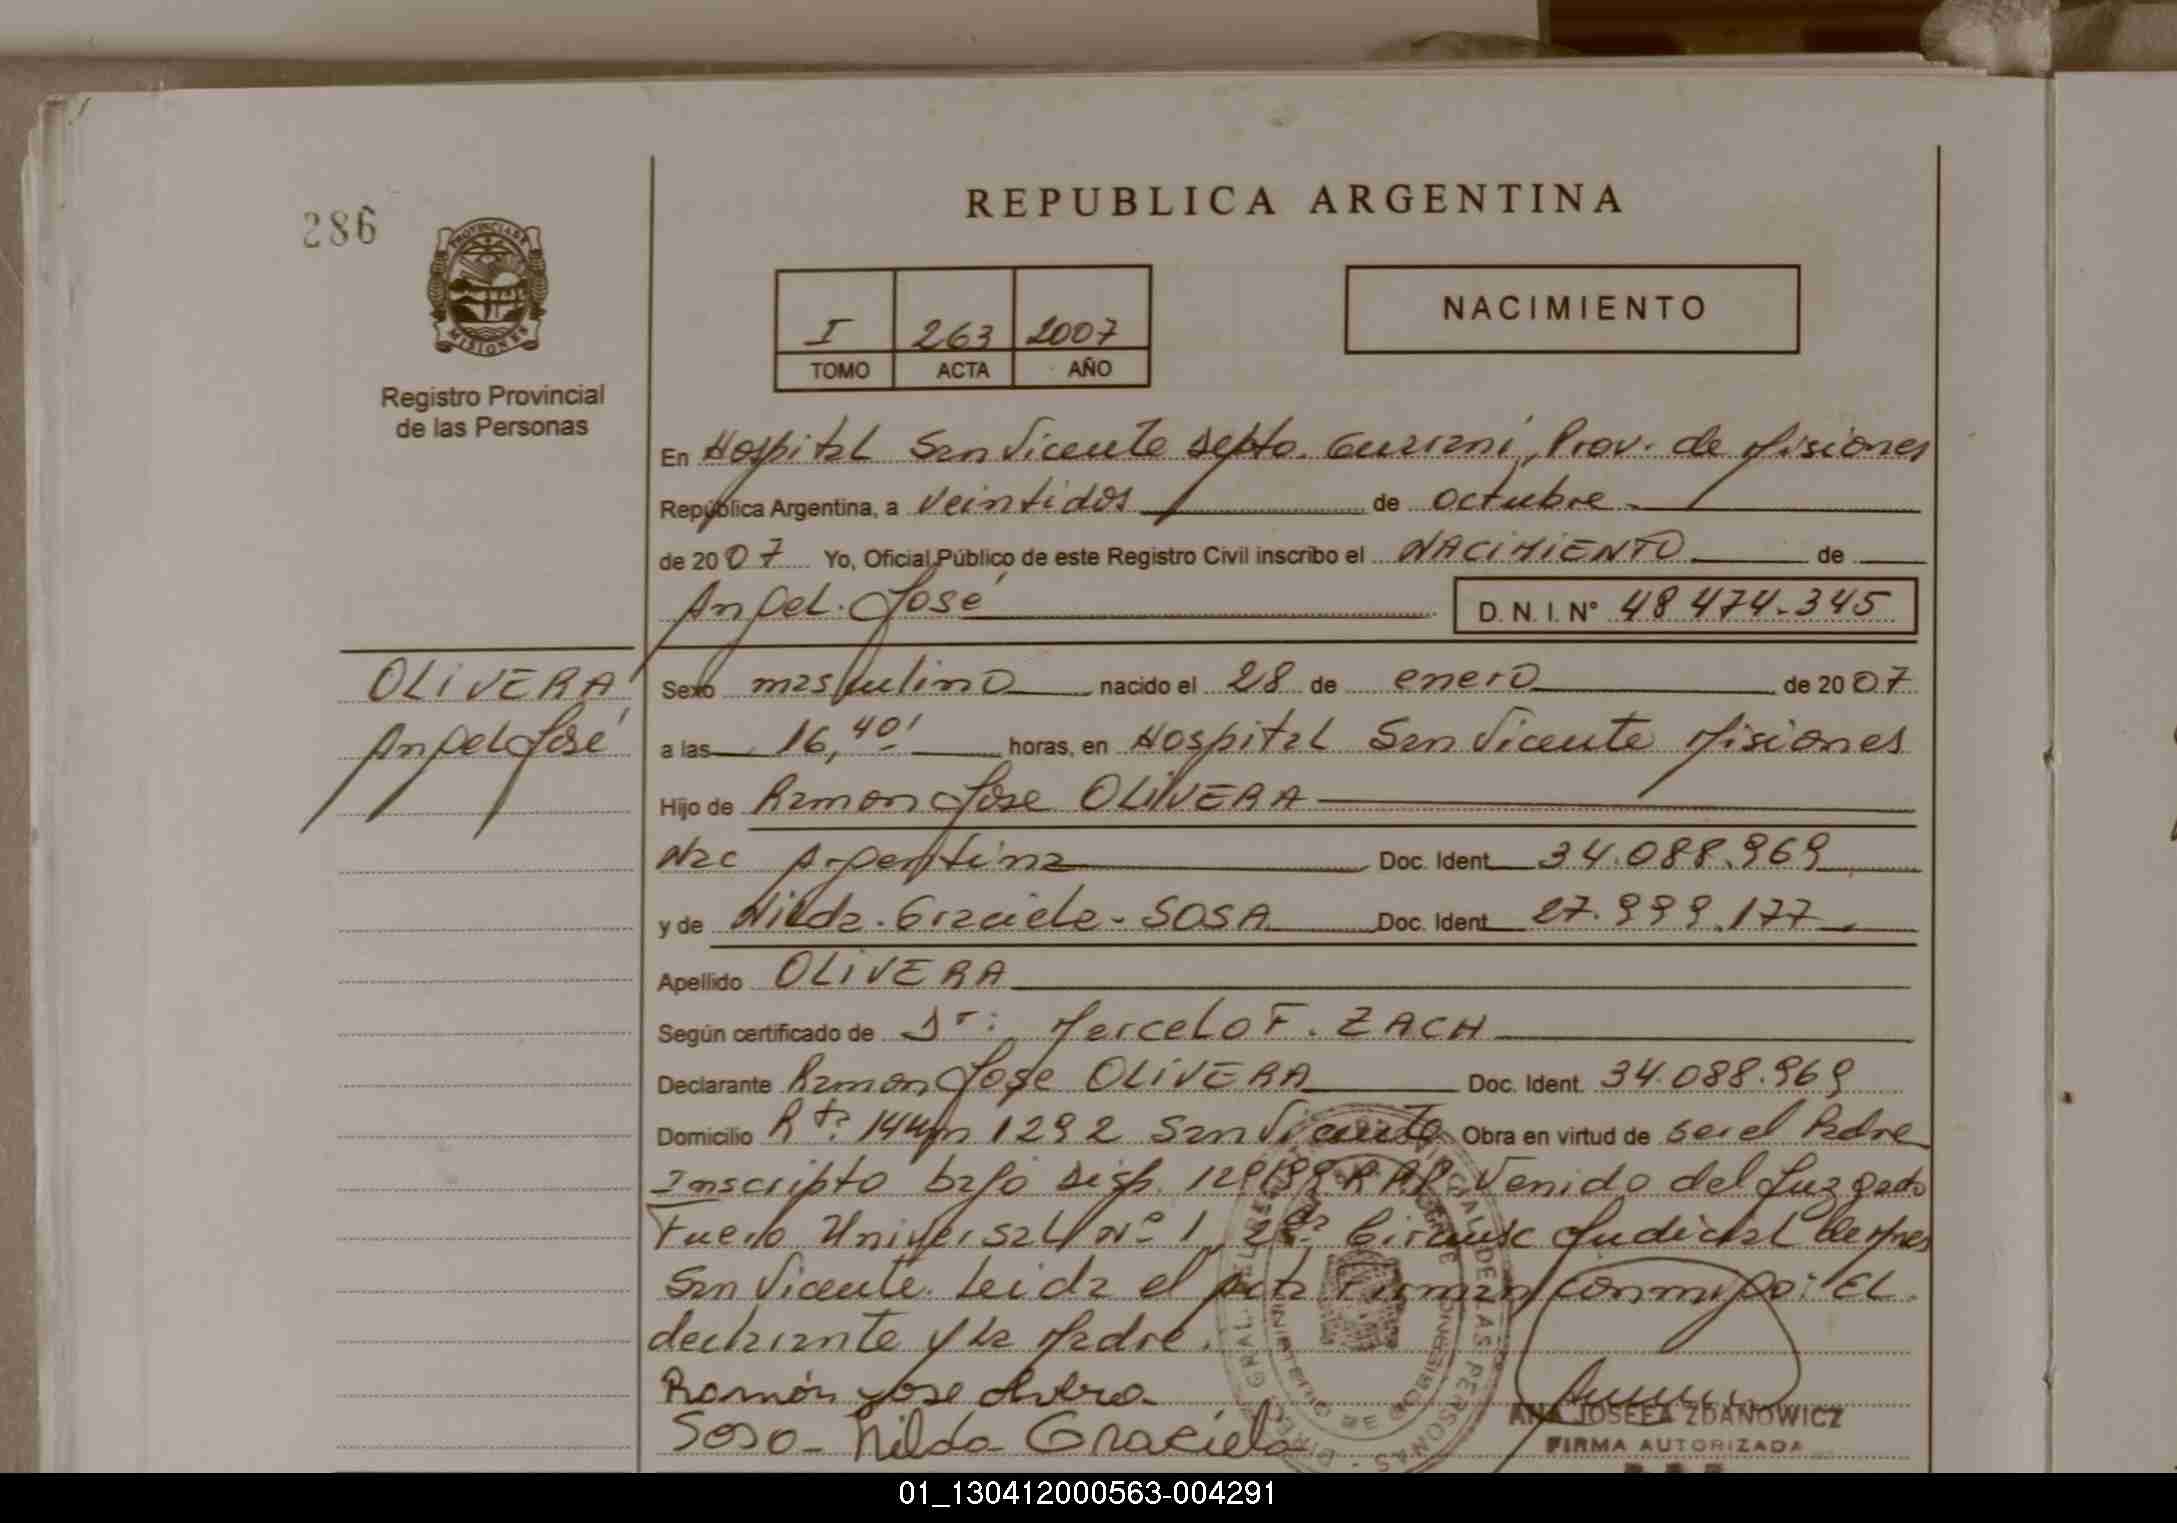 REPUBLICA ARGENTINA
286
PROVINCIA DE MISIONES
Registro Provincial
de las Personas
I 263 2007
TOMO ACTA AÑO
NACIMIENTO
En Hospital San Vicente Depto. Guaraní, Prov. de Misiones
República Argentina, a veintidos de octubre
de 2007 Yo, Oficial Público de este Registro Civil inscribo el NACIMIENTO de
Angel José D. N. I. N° 48 474.345
OLIVERA
Angel José
Sexo masculino nacido el 28 de enero de 2007
a las 16,40' horas, en Hospital San Vicente Misiones
Hijo de Ramon Jose OLIVERA
Nac Argentina Doc. Ident. 34.088.969
y de Nilda Graciela SOSA Doc. Ident. 27.999.177
Apellido OLIVERA
Según certificado de Dr: Marcelo F. ZACH
Declarante Ramon Jose OLIVERA Doc. Ident. 34.088.969
Domicilio Rta. 14 1292 San Vicente Obra en virtud de ser el Padre
Inscripto bajo disp. Venido del Juzgado
Fuero Universal N° 1, 2da Circunsc Judicial de Mnes
San Vicente. Leida el acta Firman conmigo: EL
declarante y la Madre.
Ramón Jose Olivera
Sosa Nilda Graciela
ANA JOSEFA ZDANOWICZ
FIRMA AUTORIZADA
01_130412000563-004291